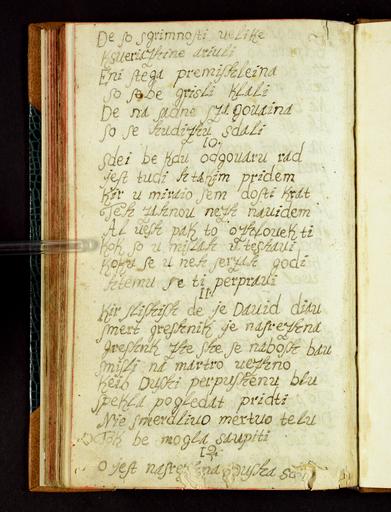 De so s grimnosti velike
Ksverizhine drivli
Eni stega premishleina
so sobe grisli klali
De na sadne szagovaina
so se hudizhu sdali
10.
Sdei be kdu odgovaru rad
jest tudi htakim pridem
Kir u miraio sem dosti krat
nezh navidem
Al vesh pak to ozhlovek ti
kok so u misah u teshavi
Koku se u neh serzah godi
htemu se ti perpravi
11.
Kir slishish de je David diau
smert greshnik je nasrezhna
greshnik zhe she se nabosh bau
smisli na martro vezhno
Keib Dushi perpushenu blu
spekla pogledat pridti
Nie smerdlivo mertvo telu
Tok be mogla saupiti
12.
O jest nasrezhna dusha